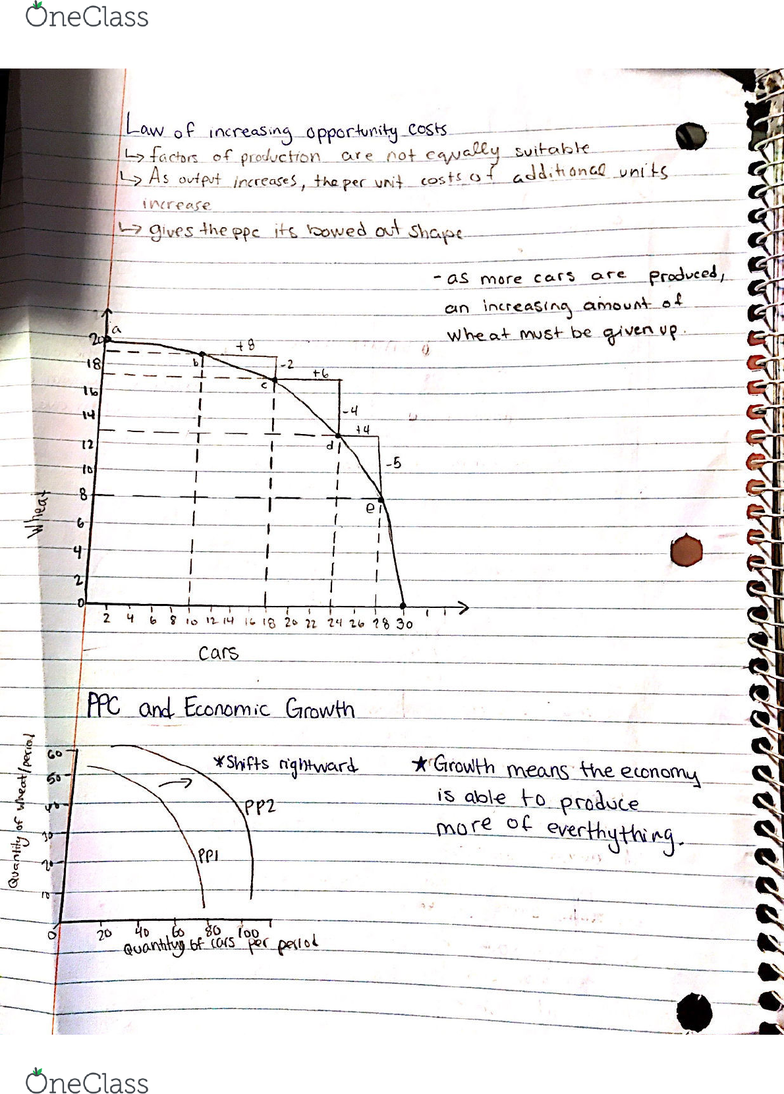 OneClass
Law of increasing opportunity costs
↳ factors of production are not equally suitable
↳ As output increases, the per unit costs of additional units
increase
↳ gives the ppc its bowed out shape
- as more cars are produced,
an increasing amount of
wheat must be given up.
a
20
+8
b
-2
18
+6
c
16
-4
14
+4
d
12
-5
10
8
e
Wheat
6
4
2
0
2 4 6 8 10 12 14 16 18 20 22 24 26 28 30
cars
PPC and Economic Growth
60
*Shifts rightward
★ Growth means the economy
50
is able to produce
40
PP2
more of everthything.
30
PP1
20
10
Quantity of wheat/period
0
20 40 60 80 100
Quantity of cars per period
OneClass